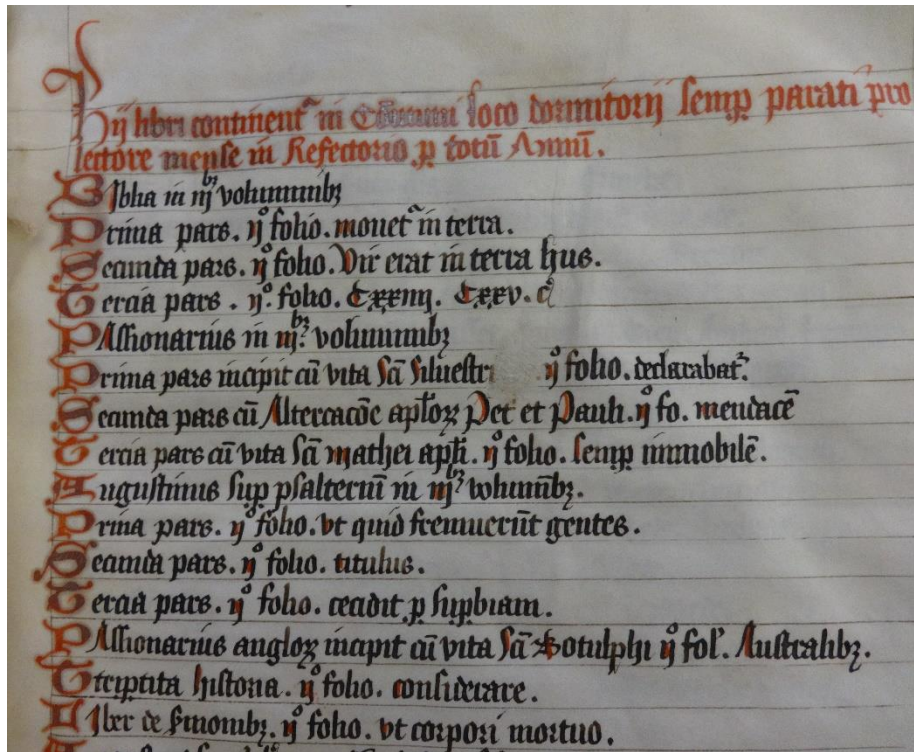 Hij libri continent~ in loco dormitorij semꝑ parati pro
lectore mense in Refectorio ꝑ totū Annū.
Biblia in iijbȝ voluminibȝ
Prima pars. ijº folio. monet~ in terra.
Secunda pars. ijº folio. Vir erat in terra hus.
Tercia pars. ijº. folio. Cxxiiij. Cxxv. c̄
PAssionarius in iijbȝ. voluminibȝ
Prima pars incipit cū vita Sc̄i Siluestri ijº folio. declarabat~.
Secunda pars cū Altercacōe apl̄oꝝ Pet et Pauli. ijº fo. mendacē
Tercia pars cū vita Sc̄i mathei apl̄i. ijº folio. semꝑ immobilē.
Augustinus suꝑ psalteriū in iijbȝ volumībȝ.
Prima pars. ijº folio. vt quid fremuerūt gentes.
Secunda pars. ijº folio. titulus.
Tercia pars. ijº folio. cecidit ꝑ suꝑbiam.
PAssionarius angloꝝ incipit cū vita Sc̄i Botulphi ijº fol'. Australibȝ.
Tripertita historia. ijº folio. considerare.
LIber de Sermonibȝ. ijº folio. vt corpori mortuo.